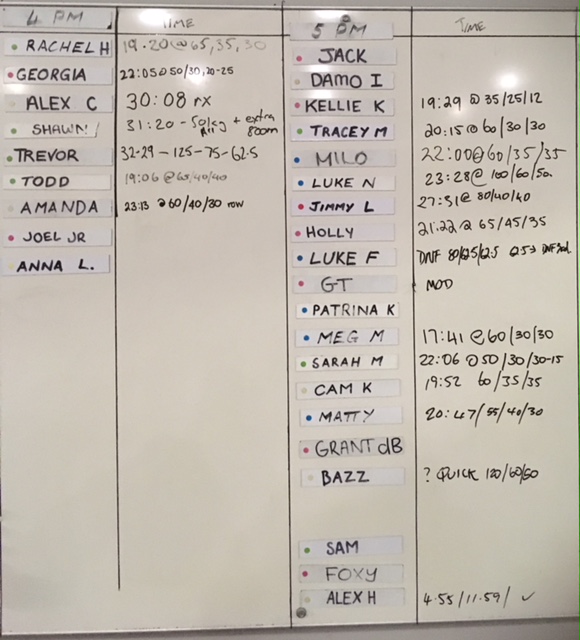 4 PM TIME
RACHEL H 19.20@65,35,30
GEORGIA 22:05@50/30,20-25
ALEX C 30:08 rx
SHAWN 31:20 - 50kg + extra 800m
TREVOR 32-29 - 125-75-62.5
TODD 19:06 @65/40/40
AMANDA 23:13 @60/40/30 row
JOEL JR
ANNA L.
5 PM TIME
JACK
DAMO I
KELLIE K 19:29 @ 35/25/12
TRACEY M 20:15@60/30/30
MILO 22:00@60/35/35
LUKE N 23:28@ 100/60/50
JIMMY L 27:51@ 80/40/40
HOLLY 21:22 @ 65/45/35
LUKE F DNF
GT MOD
PATRINA K
MEG M 17:41 @60/30/30
SARAH M 22:06 @50/30/30-15
CAM K 19:52 60/35/35
MATTY 20:47/55/40/30
GRANT dB
BAZZ ? QUICK 120/60/60
SAM
FOXY
ALEX H 4.55/11.59/ ✓